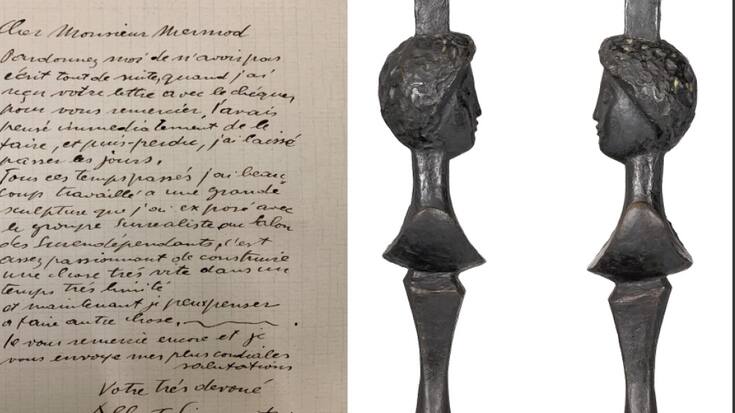 Cher Monsieur Mermod
Pardonnez moi de n'avoir pas
écrit tout de suite, quand j'ai
reçu votre lettre avec le chèque,
pour vous remercier, j'avais
pensé immédiatement de le
faire, et puis j'ai laissé
passer les jours.
Tous ces temps passés j'ai beau-
coup travaillé a une grande
sculpture que j'ai exposé avec
le groupe Surrealiste au Salon
des Surendépendants, c'est
assez passionnant de construire
une chose très vite dans un
temps très limité
et maintenant je peux penser
a faire autre chose.
Je vous remercie encore et je
vous envoye mes plus cordiales
salutations
Votre très devoué